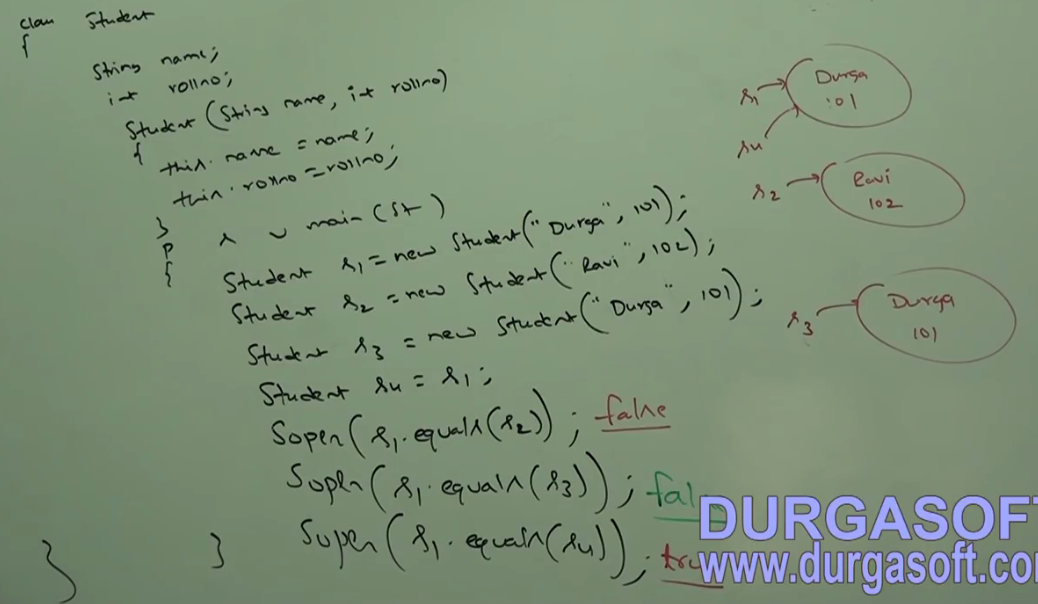 class Student
{
String name;
int rollno;
Student(String name, int rollno)
{
this.name = name;
this.rollno = rollno;
}
p s v main(St )
{
Student s1 = new Student("Durga", 101);
Student s2 = new Student("Ravi", 102);
Student s3 = new Student("Durga", 101);
Student s4 = s1;
Sopln(s1.equals(s2)); false
Sopln(s1.equals(s3)); fal
Sopln(s1.equals(s4)); tru
}
}
s1 Durga
101
s4
s2 Ravi
102
s3 Durga
101
DURGASOFT
www.durgasoft.co